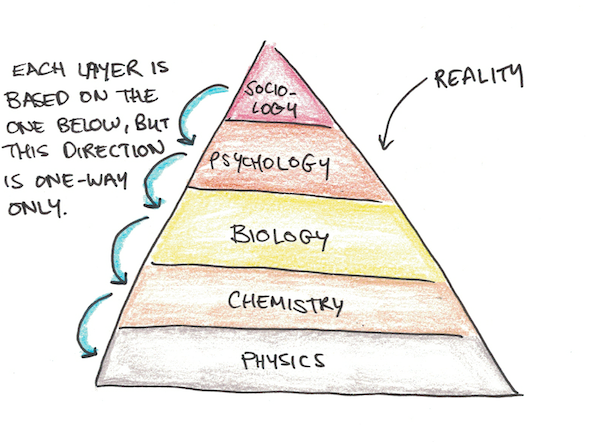 EACH LAYER IS
BASED ON THE
ONE BELOW, BUT
THIS DIRECTION
IS ONE-WAY
ONLY.
REALITY
SOCIO-
LOGY
PSYCHOLOGY
BIOLOGY
CHEMISTRY
PHYSICS